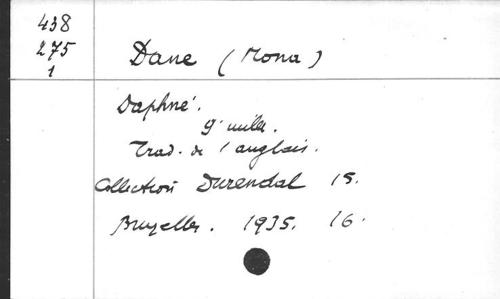 438
275
1
Dane (Mona)
Daphné.
9e mille.
Trad. de l'anglais.
Collection Durendal 15.
Bruxelles. 1935. 16.